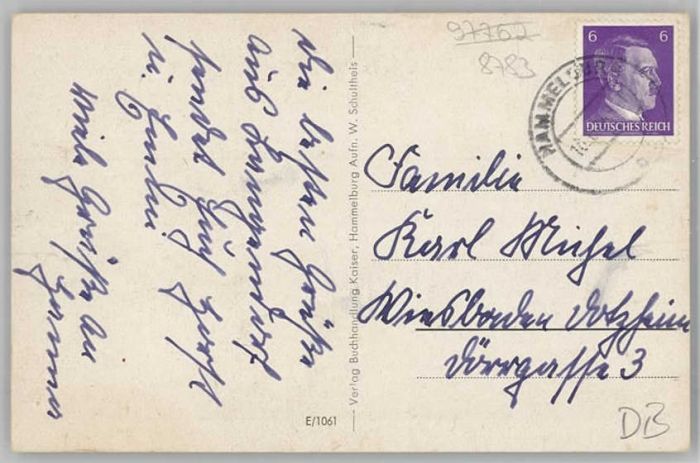 Die besten Grüße
aus
sendet Euch
u.
Viele Grüße an
97762
8783
6 6
DEUTSCHES REICH
HAMMELBURG
Familie
Karl Michel
Wiesbaden Dotzheim
Dörrgasse 3
Verlag Buchhandlung Kaiser, Hammelburg Aufn. W. Schultheis
E/1061
DB